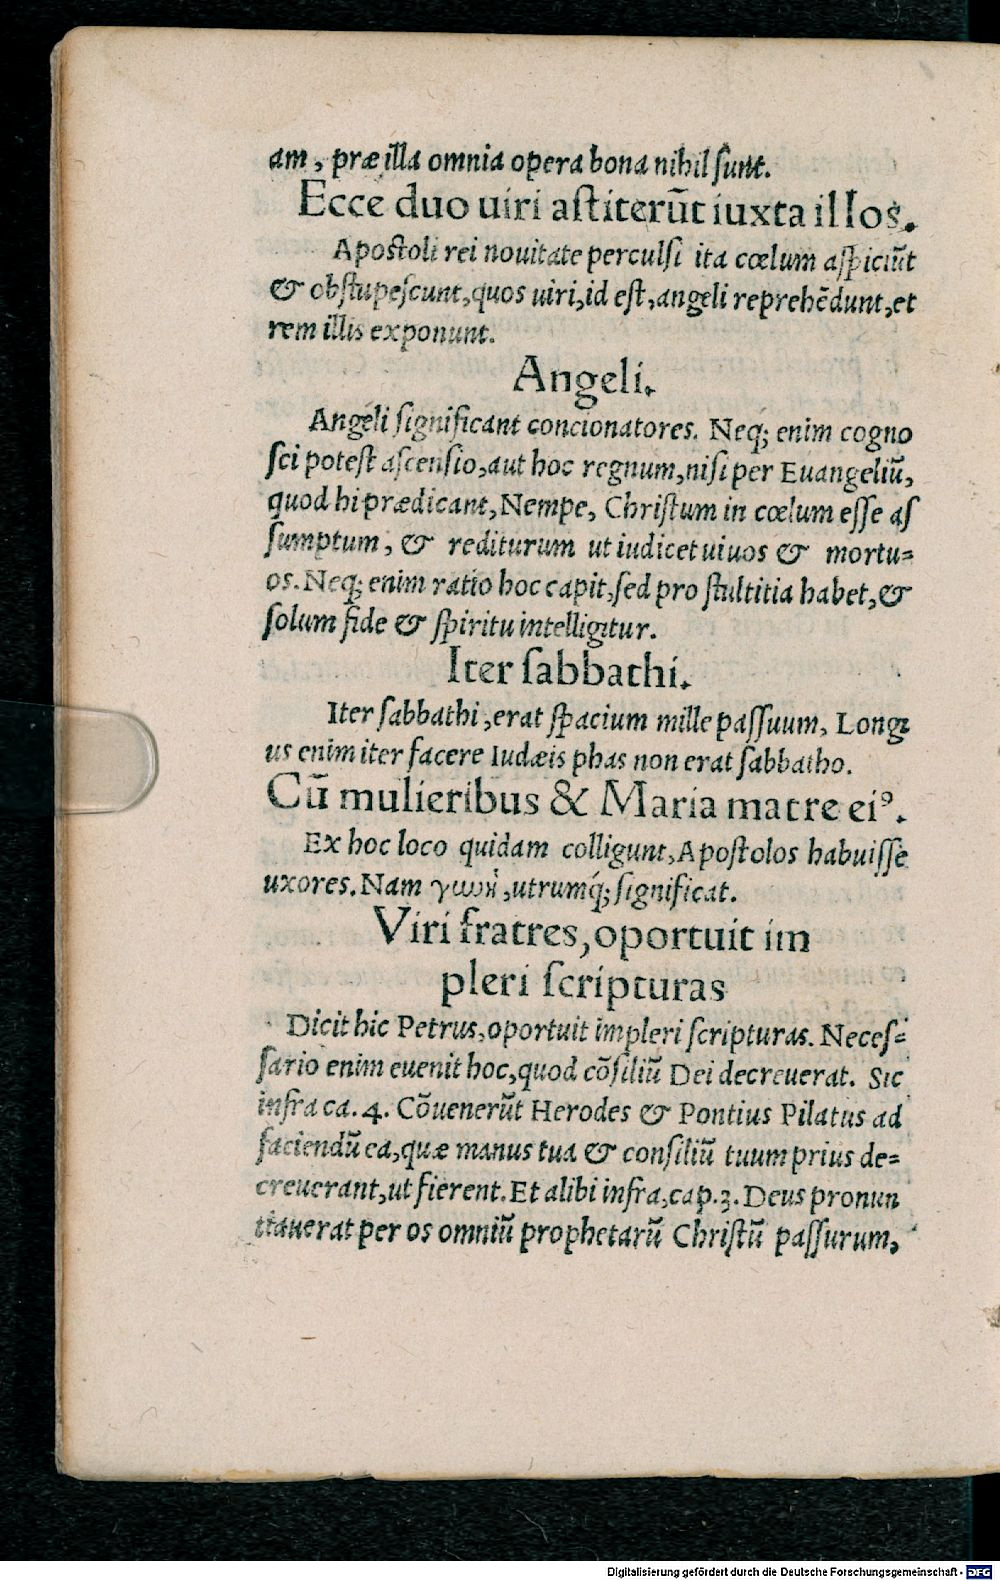 am, præ illa omnia opera bona nihil sunt.
Ecce duo uiri astiterūt iuxta illos.
Apostoli rei nouitate perculsi ita cœlum aspiciūt
& obstupescunt, quos uiri, id est, angeli reprehēdunt, et
rem illis exponunt.
Angeli.
Angeli significant concionatores. Neq; enim cogno
sci potest ascensio, aut hoc regnum, nisi per Euangeliū,
quod hi prædicant, Nempe, Christum in cœlum esse as
sumptum, & rediturum ut iudicet uiuos & mortu=
os. Neq; enim ratio hoc capit, sed pro stultitia habet, &
solum fide & spiritu intelligitur.
Iter sabbathi.
Iter sabbathi, erat spacium mille passuum, Longi
us enim iter facere Iudæis phas non erat sabbatho.
Cū mulieribus & Maria matre eiꝰ.
Ex hoc loco quidam colligunt, Apostolos habuisse
uxores. Nam γωνὴ, utrumq́; significat.
Viri fratres, oportuit im
pleri scripturas
Dicit hic Petrus, oportuit impleri scripturas. Neces=
sario enim euenit hoc, quod cōsiliū Dei decreuerat. Sic
infra ca. 4. Cōuenerūt Herodes & Pontius Pilatus ad
faciendū ea, quæ manus tua & consiliū tuum prius de=
creuerant, ut fierent. Et alibi infra, cap. 3. Deus pronun
tiauerat per os omniū prophetarū Christū passurum,
Digitalisierung gefördert durch die Deutsche Forschungsgemeinschaft - DFG